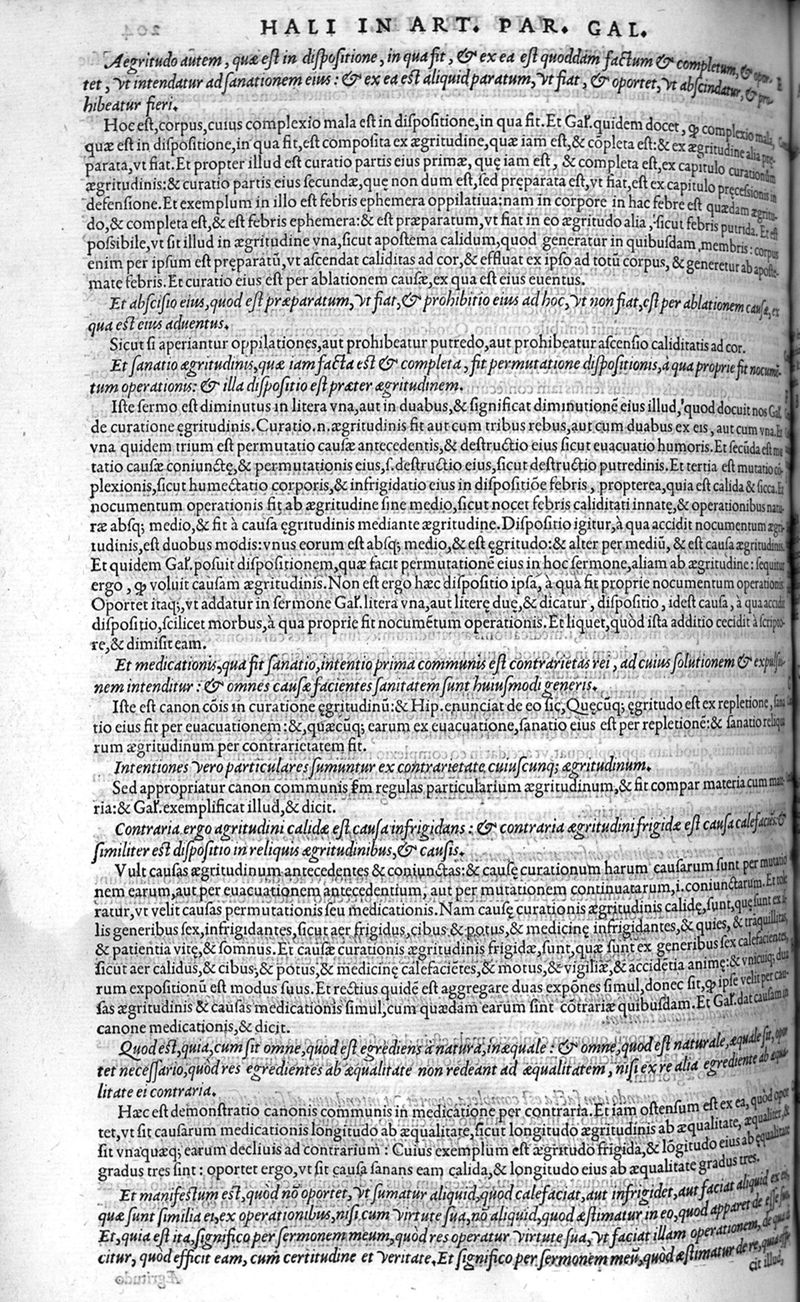 HALI IN ART. PAR. GAL.
Aegritudo autem, quæ est in dispositione, in qua fit, & ex ea est quoddam factum & completum, & opor-
tet, vt intendatur ad sanationem eius: & ex ea est aliquid paratum, vt fiat, & oportet, vt abscindatur, & pro-
hibeatur fieri.
Hoc est, corpus, cuius complexio mala est in dispositione, in qua fit. Et Gal. quidem docet, ꝙ complexio mala,
quæ est in dispositione, in qua fit, est composita ex ægritudine, quæ iam est, & cōpleta est: & ex ægritudine alia præ-
parata, vt fiat. Et propter illud est curatio partis eius primæ, quę iam est, & completa est, ex capitulo curationum
ægritudinis: & curatio partis eius secundæ, quę non dum est, sed pręparata est, vt fiat, est ex capitulo pręcessionis in
defensione. Et exemplum in illo est febris ephemera oppilatiua: nam in corpore in hac febre est quædam ægritu-
do, & completa est, & est febris ephemera: & est præparatum, vt fiat in eo ægritudo alia, sicut febris putrida. Et est
possibile, vt sit illud in ægritudine vna, sicut apostema calidum, quod generatur in quibusdam membris: corpus
enim per ipsum est pręparatū, vt ascendat caliditas ad cor, & effluat ex ipso ad totū corpus, & generetur ab aposte-
mate febris. Et curatio eius est per ablationem causæ, ex qua est eius euentus.
Et abscisio eius, quod est præparatum, vt fiat, & prohibitio eius ad hoc, vt non fiat, est per ablationem causæ, ex
qua est eius aduentus.
Sicut si aperiantur oppilationes, aut prohibeatur putredo, aut prohibeatur ascensio caliditatis ad cor.
Et sanatio ægritudinis, quæ iam facta est & completa, fit permutatione dispositionis, à qua proprie fit nocumen-
tum operationis: & illa dispositio est præter ægritudinem.
Iste sermo est diminutus in litera vna, aut in duabus, & significat diminutionē eius illud, quod docuit nos Gal.
de curatione ęgritudinis. Curatio .n. ægritudinis fit aut cum tribus rebus, aut cum duabus ex eis, aut cum vna. Et
vna quidem trium est permutatio causæ antecedentis, & destructio eius sicut euacuatio humoris. Et secūda est mu
tatio causæ coniunctę, & permutationis eius, s. destructio eius, sicut destructio putredinis. Et tertia est mutatio cō-
plexionis, sicut humectatio corporis, & infrigidatio eius in dispositiōe febris, propterea, quia est calida & sicca. Et
nocumentum operationis fit ab ægritudine sine medio, sicut nocet febris caliditati innatę, & operationibus natu-
ræ absq; medio, & fit à causa ęgritudinis mediante ægritudine. Dispositio igitur, à qua accidit nocumentum ægri-
tudinis, est duobus modis: vnus eorum est absq; medio, & est ęgritudo: & alter per mediū, & est causa ægritudinis.
Et quidem Gal. posuit dispositionem, quæ facit permutationē eius in hoc sermone, aliam ab ægritudine: sequitur
ergo, ꝙ voluit causam ægritudinis. Non est ergo hæc dispositio ipsa, à qua fit proprie nocumentum operationis.
Oportet itaq;, vt addatur in sermone Gal. litera vna, aut literę duę, & dicatur, dispositio, idest causa, à qua accidit
dispositio, scilicet morbus, à qua proprie fit nocumētum operationis. Et liquet, quòd ista additio cecidit à scripto-
re, & dimisit eam.
Et medicationis, qua fit sanatio, intentio prima communis est contrarietas rei, ad cuius solutionem & expulsio-
nem intenditur: & omnes causæ facientes sanitatem sunt huiusmodi generis.
Iste est canon cōis in curatione ęgritudinū: & Hip. enunciat de eo sic, Quęcūq; ęgritudo est ex repletione, sana
tio eius fit per euacuationem: &, quæcūq; earum ex euacuatione, sanatio eius est per repletionē: & sanatio reliqua
rum ægritudinum per contrarietatem fit.
Intentiones vero particulares sumuntur ex contrarietate cuiuscunq; ægritudinum.
Sed appropriatur canon communis ẜm regulas particularium ægritudinum, & fit compar materia cum mate-
ria: & Gal. exemplificat illud, & dicit.
Contraria ergo ægritudini calidæ est causa infrigidans: & contraria ægritudini frigidæ est causa calefaciens. &
similiter est dispositio in reliquis ægritudinibus, & causis.
Vult causas ægritudinum antecedentes & coniunctas: & causę curationum harum causarum sunt per mutatio
nem earum, aut per euacuationem antecedentium, aut per mutationem continuatarum, i. coniunctarum. Et tole
ratur, vt velit causas permutationis seu medicationis. Nam causę curationis ægritudinis calidę, sunt, quę sunt ex il-
lis generibus sex, infrigidantes, sicut aer frigidus, cibus & potus, & medicinę infrigidantes, & quies, & tranquillitas,
& patientia vitę, & somnus. Et causæ curationis ægritudinis frigidæ, sunt, quæ sunt ex generibus sex calefacientes,
sicut aer calidus, & cibus, & potus, & medicinę calefaciētes, & motus, & vigiliæ, & accidētia animę: & vnicuiq; dua
rum expositionū est modus suus. Et rectius quidē est aggregare duas expōnes simul, donec sit, ꝙ ipse velit per cau-
sas ægritudinis & causas medicationis simul, cum quædam earum sint cōtrariæ quibusdam. Et Gal. dat causam in
canone medicationis, & dicit.
Quod est, quia, cum sit omne, quod est egrediens à natura, inæquale: & omne, quod est naturale, æquale sit, opor
tet necessario, quòd res egredientes ab æqualitate non redeant ad æqualitatem, nisi ex re alia egrediente ab æqua-
litate ei contraria.
Hæc est demonstratio canonis communis in medicatione per contraria. Et iam ostensum est ex ea, quòd opor
tet, vt sit causarum medicationis longitudo ab æqualitate, sicut longitudo ægritudinis ab æqualitate, æqualiter, &
sit vnaquæq; earum decliuis ad contrarium: Cuius exemplum est ægritudo frigida, & lōgitudo eius ab æqualitate
gradus tres sint: oportet ergo, vt sit causa sanans eam calida, & longitudo eius ab æqualitate gradus tres.
Et manifestum est, quòd nō oportet, vt sumatur aliquid, quod calefaciat, aut infrigidet, aut faciat aliquid ex eis,
quæ sunt similia ei, ex operationibus, nisi cum virtute sua, nō aliquid, quod æstimatur in eo, quod apparet de esse suo.
Et, quia est ita, significo per sermonem meum, quòd res operatur virtute sua, vt faciat illam operationem, de qua di-
citur, quòd efficit eam, cum certitudine et veritate. Et significo per sermonem meū, quòd æstimatur de re, quia effi-
cit illud,
Ægritudo